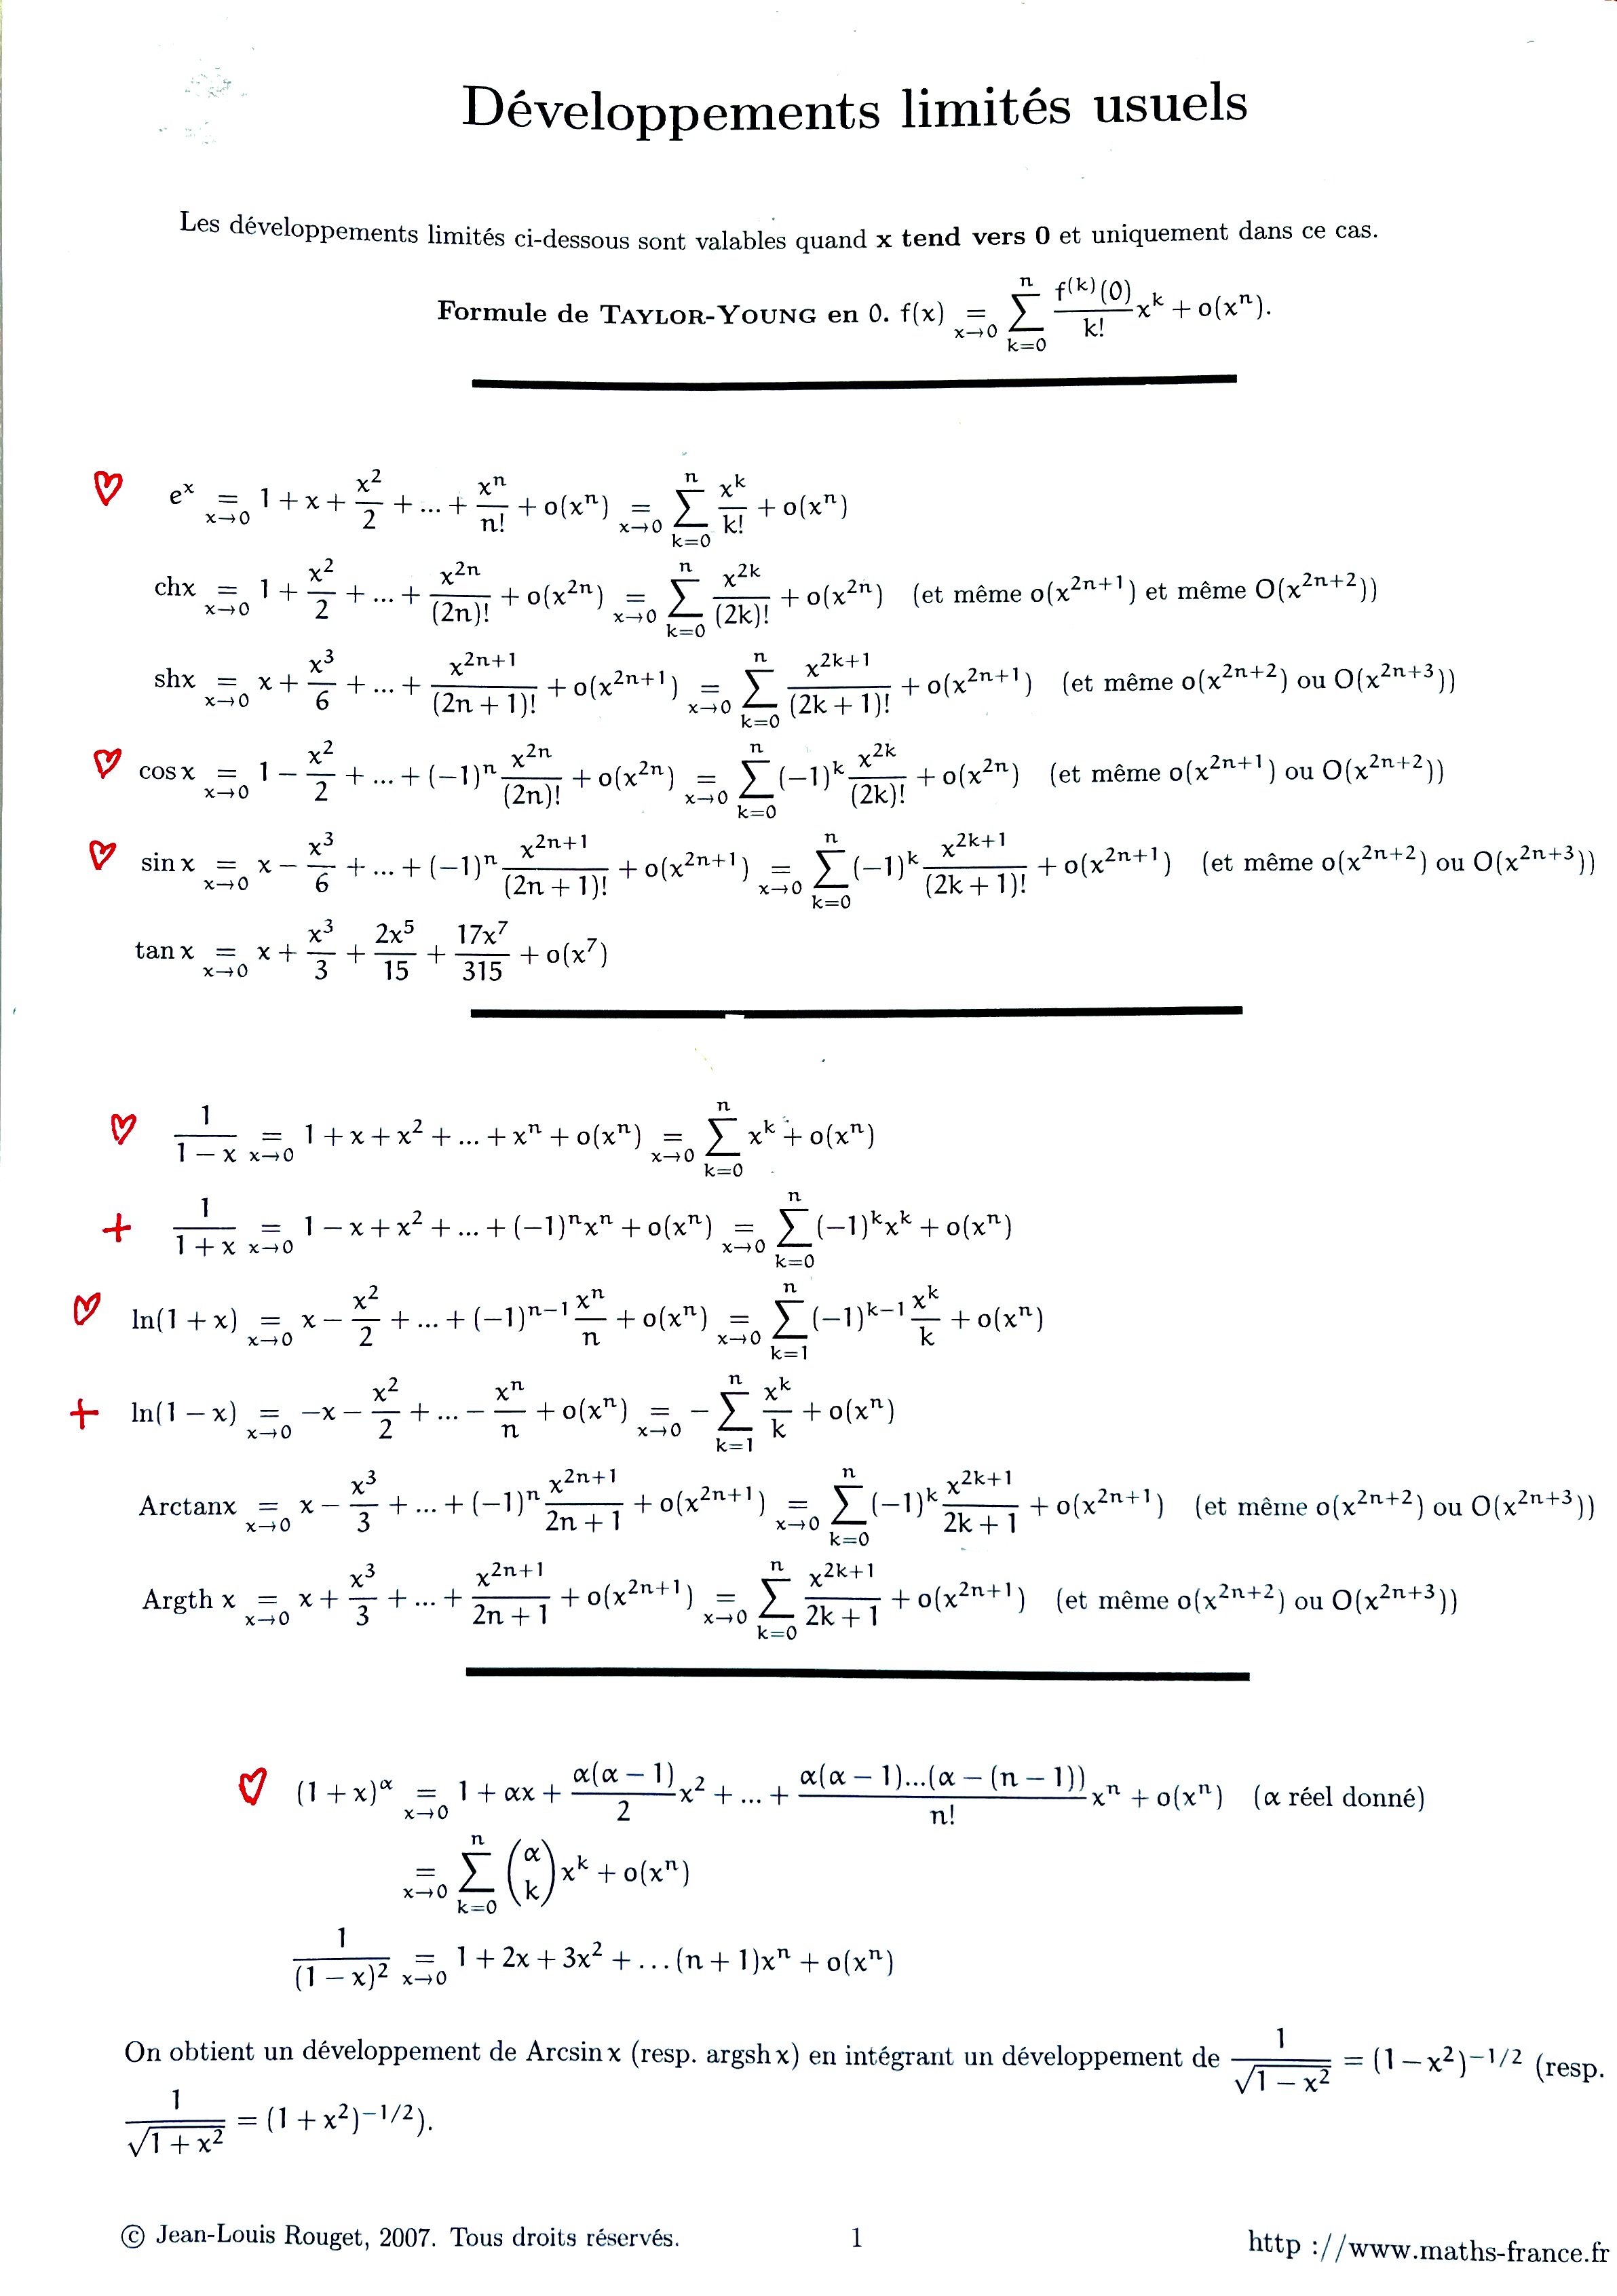 Développements limités usuels
Les développements limités ci-dessous sont valables quand x tend vers 0 et uniquement dans ce cas.
Formule de TAYLOR-YOUNG en 0. f(x) =_{x→0} \sum_{k=0}^{n} \frac{f^{(k)}(0)}{k!} x^k + o(x^n).
♡ e^x =_{x→0} 1 + x + \frac{x^2}{2} + ... + \frac{x^n}{n!} + o(x^n) =_{x→0} \sum_{k=0}^{n} \frac{x^k}{k!} + o(x^n)
chx =_{x→0} 1 + \frac{x^2}{2} + ... + \frac{x^{2n}}{(2n)!} + o(x^{2n}) =_{x→0} \sum_{k=0}^{n} \frac{x^{2k}}{(2k)!} + o(x^{2n}) (et même o(x^{2n+1}) et même O(x^{2n+2}))
shx =_{x→0} x + \frac{x^3}{6} + ... + \frac{x^{2n+1}}{(2n+1)!} + o(x^{2n+1}) =_{x→0} \sum_{k=0}^{n} \frac{x^{2k+1}}{(2k+1)!} + o(x^{2n+1}) (et même o(x^{2n+2}) ou O(x^{2n+3}))
♡ cos x =_{x→0} 1 − \frac{x^2}{2} + ... + (−1)^n \frac{x^{2n}}{(2n)!} + o(x^{2n}) =_{x→0} \sum_{k=0}^{n} (−1)^k \frac{x^{2k}}{(2k)!} + o(x^{2n}) (et même o(x^{2n+1}) ou O(x^{2n+2}))
♡ sin x =_{x→0} x − \frac{x^3}{6} + ... + (−1)^n \frac{x^{2n+1}}{(2n+1)!} + o(x^{2n+1}) =_{x→0} \sum_{k=0}^{n} (−1)^k \frac{x^{2k+1}}{(2k+1)!} + o(x^{2n+1}) (et même o(x^{2n+2}) ou O(x^{2n+3}))
tan x =_{x→0} x + \frac{x^3}{3} + \frac{2x^5}{15} + \frac{17x^7}{315} + o(x^7)
♡ \frac{1}{1−x} =_{x→0} 1 + x + x^2 + ... + x^n + o(x^n) =_{x→0} \sum_{k=0}^{n} x^k + o(x^n)
+ \frac{1}{1+x} =_{x→0} 1 − x + x^2 + ... + (−1)^n x^n + o(x^n) =_{x→0} \sum_{k=0}^{n} (−1)^k x^k + o(x^n)
♡ ln(1 + x) =_{x→0} x − \frac{x^2}{2} + ... + (−1)^{n−1} \frac{x^n}{n} + o(x^n) =_{x→0} \sum_{k=1}^{n} (−1)^{k−1} \frac{x^k}{k} + o(x^n)
+ ln(1 − x) =_{x→0} −x − \frac{x^2}{2} + ... − \frac{x^n}{n} + o(x^n) =_{x→0} − \sum_{k=1}^{n} \frac{x^k}{k} + o(x^n)
Arctanx =_{x→0} x − \frac{x^3}{3} + ... + (−1)^n \frac{x^{2n+1}}{2n+1} + o(x^{2n+1}) =_{x→0} \sum_{k=0}^{n} (−1)^k \frac{x^{2k+1}}{2k+1} + o(x^{2n+1}) (et même o(x^{2n+2}) ou O(x^{2n+3}))
Argth x =_{x→0} x + \frac{x^3}{3} + ... + \frac{x^{2n+1}}{2n+1} + o(x^{2n+1}) =_{x→0} \sum_{k=0}^{n} \frac{x^{2k+1}}{2k+1} + o(x^{2n+1}) (et même o(x^{2n+2}) ou O(x^{2n+3}))
♡ (1 + x)^α =_{x→0} 1 + αx + \frac{α(α−1)}{2} x^2 + ... + \frac{α(α−1)...(α−(n−1))}{n!} x^n + o(x^n) (α réel donné)
=_{x→0} \sum_{k=0}^{n} \binom{α}{k} x^k + o(x^n)
\frac{1}{(1−x)^2} =_{x→0} 1 + 2x + 3x^2 + ... (n + 1)x^n + o(x^n)
On obtient un développement de Arcsin x (resp. argsh x) en intégrant un développement de \frac{1}{\sqrt{1−x^2}} = (1−x^2)^{−1/2} (resp.
\frac{1}{\sqrt{1+x^2}} = (1 + x^2)^{−1/2}).
© Jean-Louis Rouget, 2007. Tous droits réservés. 1 http ://www.maths-france.fr